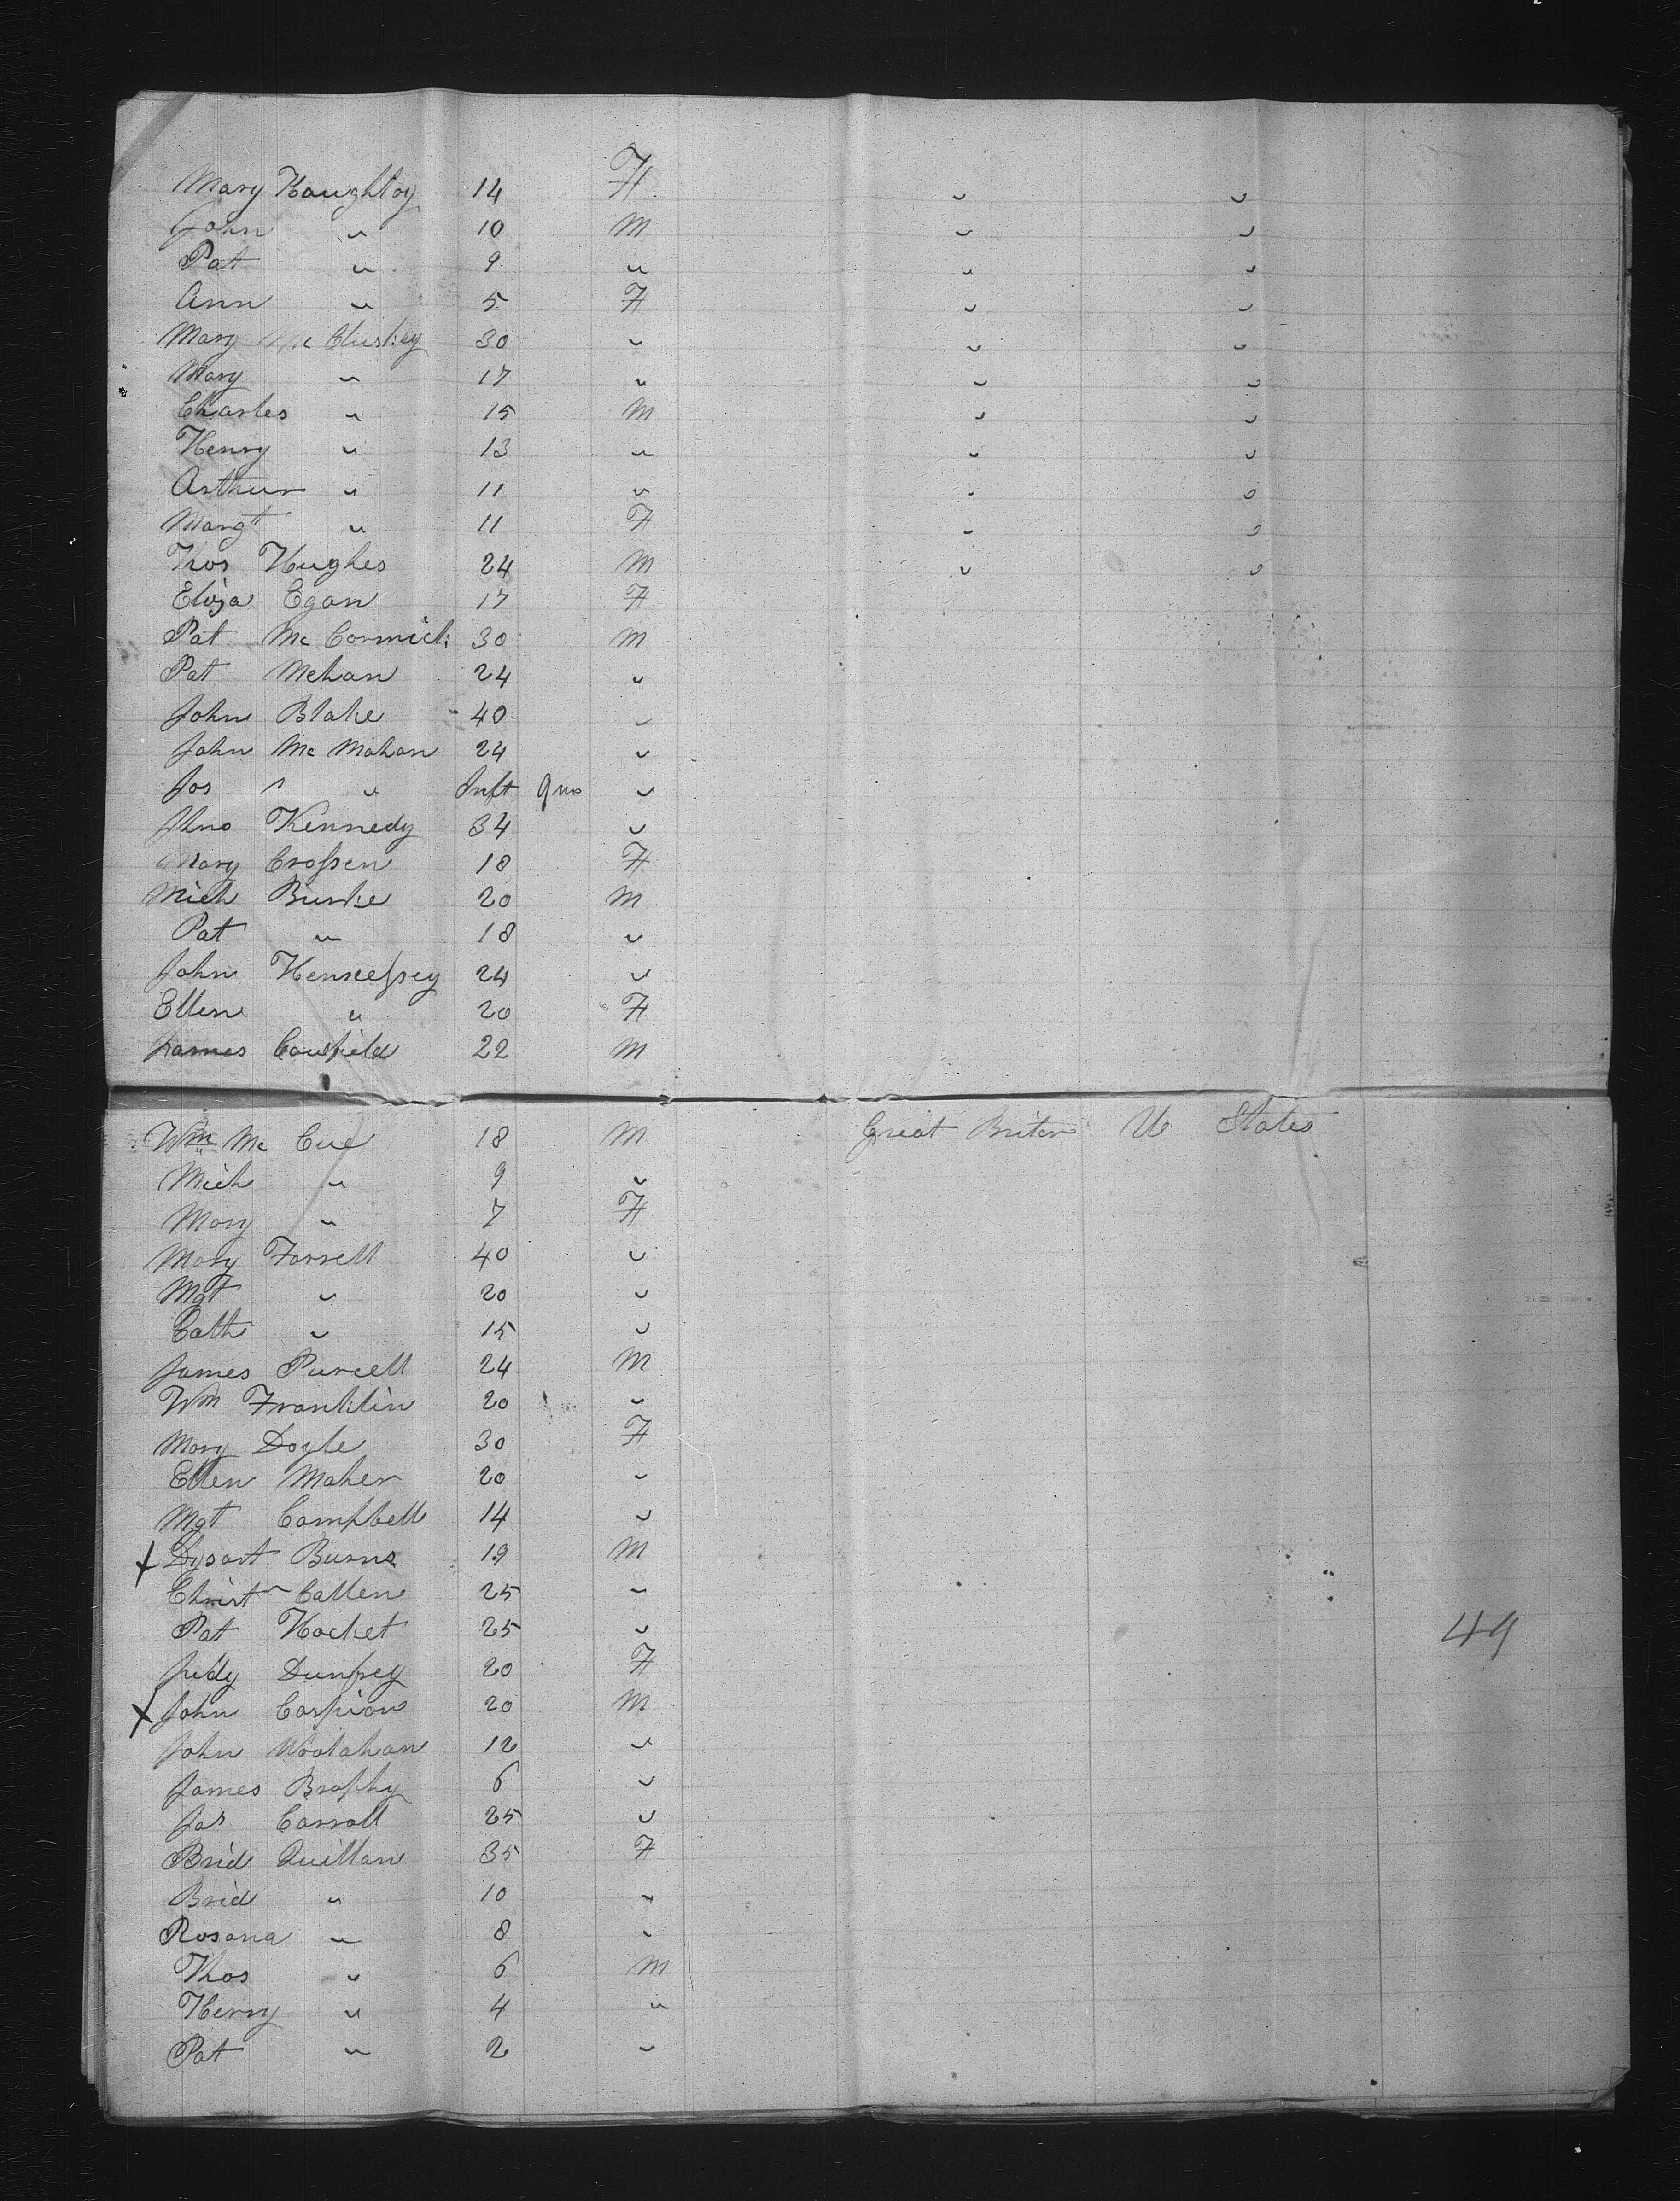 Mary Haughtoy 14 F " "
John " 10 M " "
Pat " 9 " " "
Ann " 5 F " "
Mary Mc Cluskey 30 " " "
Mary " 17 " " "
Charles " 15 M " "
Henry " 13 " " "
Arthur " 11 " " "
Margt " 11 F " "
Thos Hughes 24 M " "
Eliza Egan 17 F
Pat Mc Cormick 30 M
Pat Mehan 24 "
John Blake 40 "
John Mc Mahan 24 "
Jos " " Inft 9 ms "
Jhno Kennedy 34 "
Mary Crossen 18 F
Mich Burke 20 M
Pat " 18 "
John Hennessey 24 "
Ellen " 20 F
James Caulfield 22 M
Wm Mc Cue 18 M Great Briten U States
Mich " 9 "
Mary " 7 F
Mary Farrell 40 "
Mgt " 20 "
Cath " 15 "
James Purcell 24 M
Wm Franklin 20 "
Mary Doyle 30 F
Ellen Maher 20 "
Mgt Campbell 14 "
X Dysart Burns 19 M
Christn Callen 25 "
Pat Hacket 25 "
49
Judy Dunfrey 20 F
X John Carpion 20 M
John Woolahan 12 "
James Brophy 6 "
Jas Carroll 25 "
Brid Quillan 35 F
Brid " 10 "
Rosana " 8 "
Thos " 6 M
Henry " 4 "
Pat " 2 "